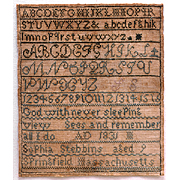 ABCDEFGHIKLMNOPQR
STUVWXYZ & abcdefghik
lmnopqrstuvwxyz
ABCDEFGHIKL
MNOPQRSTU
VWXYZ
God with never sleeping
Views Sees and remember
all I do AD 1831
Sophia Stebbins aged 9
Springfield Massachusetts